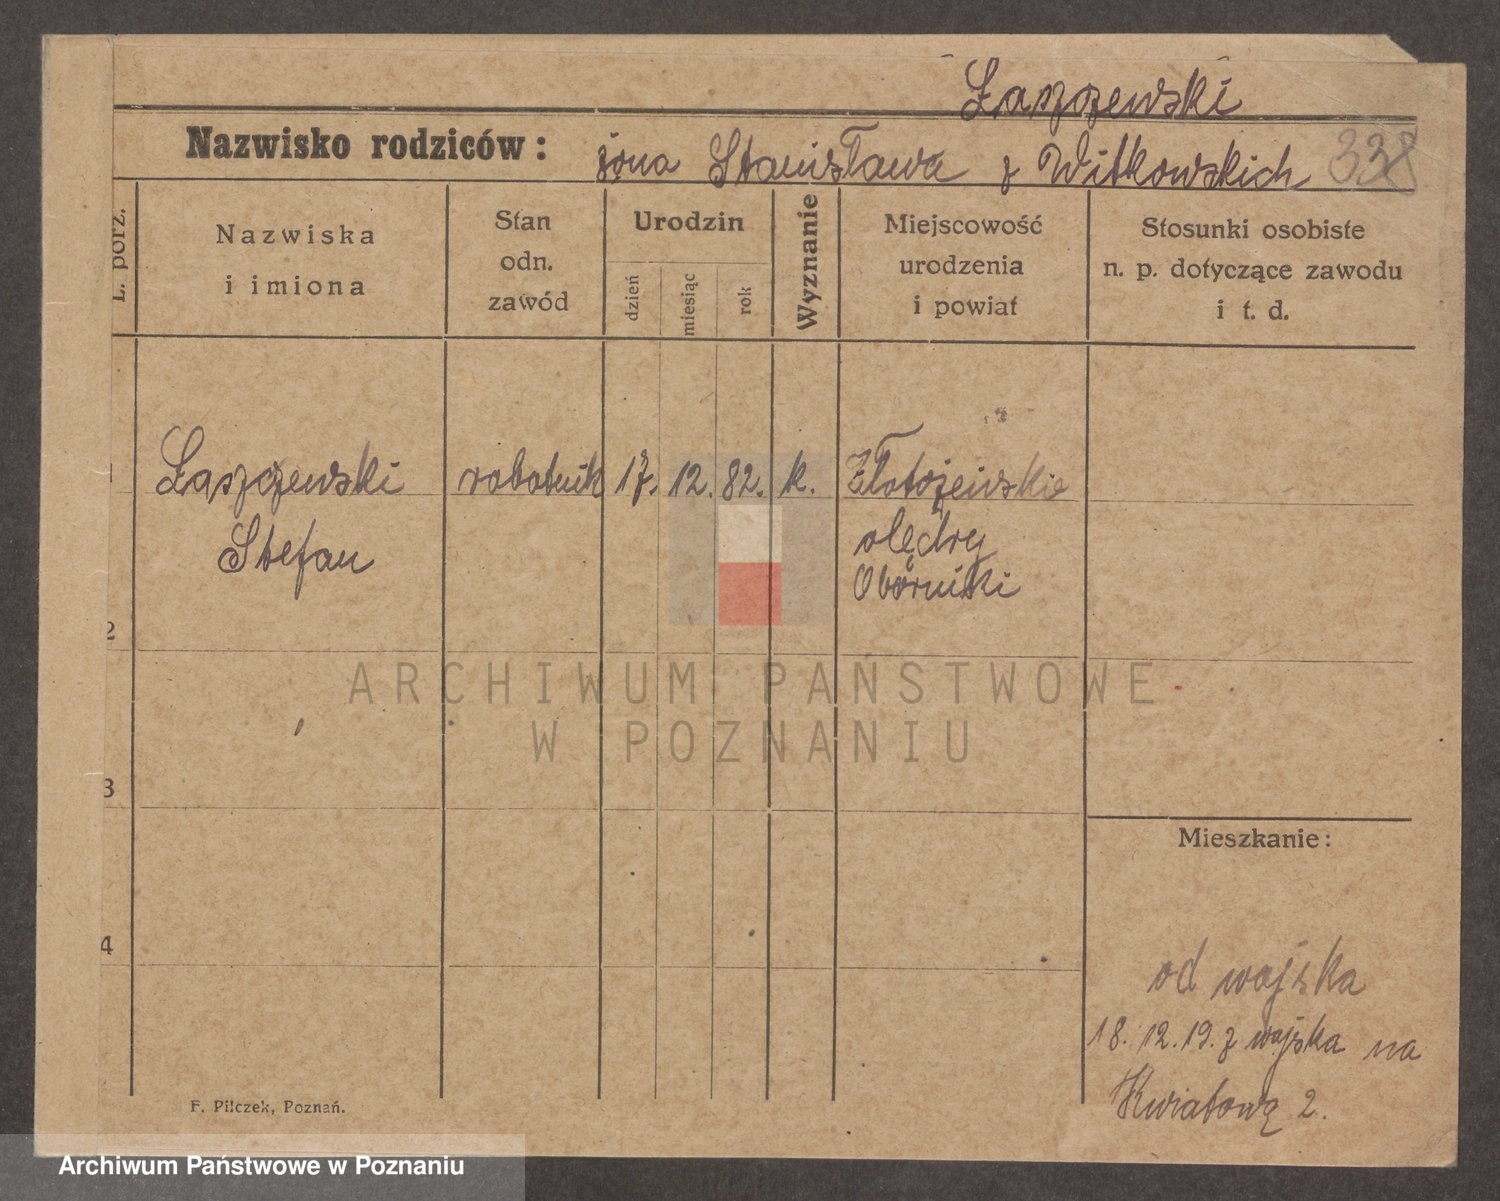 Łaszczewski
Nazwisko rodziców: żona Stanisława z Witkowskich 338
L. porz.
Nazwiska
i imiona
Stan
odn.
zawód
Urodzin
dzień
miesiąc
rok
Wyznanie
Miejscowość
urodzenia
i powiat
Stosunki osobiste
n. p. dotyczące zawodu
i t. d.
1 Łaszczewski robotnik 17. 12. 82. k. Złotojewskie
Stefan olędry
Oborniki
2
ARCHIWUM PAŃSTWOWE
W POZNANIU
3
Mieszkanie:
4
od wojska
18. 12. 19. z wojska na
Kwiatową 2.
F. Pilczek, Poznań.
Archiwum Państwowe w Poznaniu